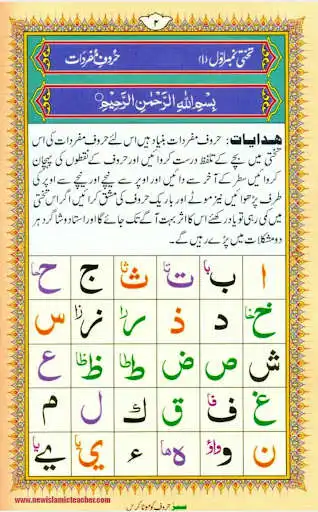 ۲
تختی نمبر اوّل (۱) حروفِ مفردات
بِسْمِ اللهِ الرَّحْمٰنِ الرَّحِيْمِ
ہدایات: حروف مفردات بنیاد ہیں اس لئے حروف مفردات کی اس
تختی میں بچے کے تلفظ درست کروائیں اور حروف کے نقطوں کی پہچان
کروائیں سطر کے آخر سے دائیں اور اوپر سے نیچے اور نیچے سے اوپر کی
طرف پڑھوائیں نیز موٹے اور باریک حروف کی مشق کرائیں اگر اس تختی
میں کمی رہی تو یاد رکھئے اس کا اثر بہت آگے تک جائے گا اور استاد و شاگرد ہر
دو مشکلات میں پڑے رہیں گے۔
ا ب با ت تا ث ثا ج ح حا
خ خا د ذ ر را ز زا س
ش ص ض ط طا ظ ظا ع
غ ف فا ق ك ل م
ن و واؤ ه ها ء ي يا ے يا
www.newislamicteacher.com
سبز حروف کو موٹا کریں